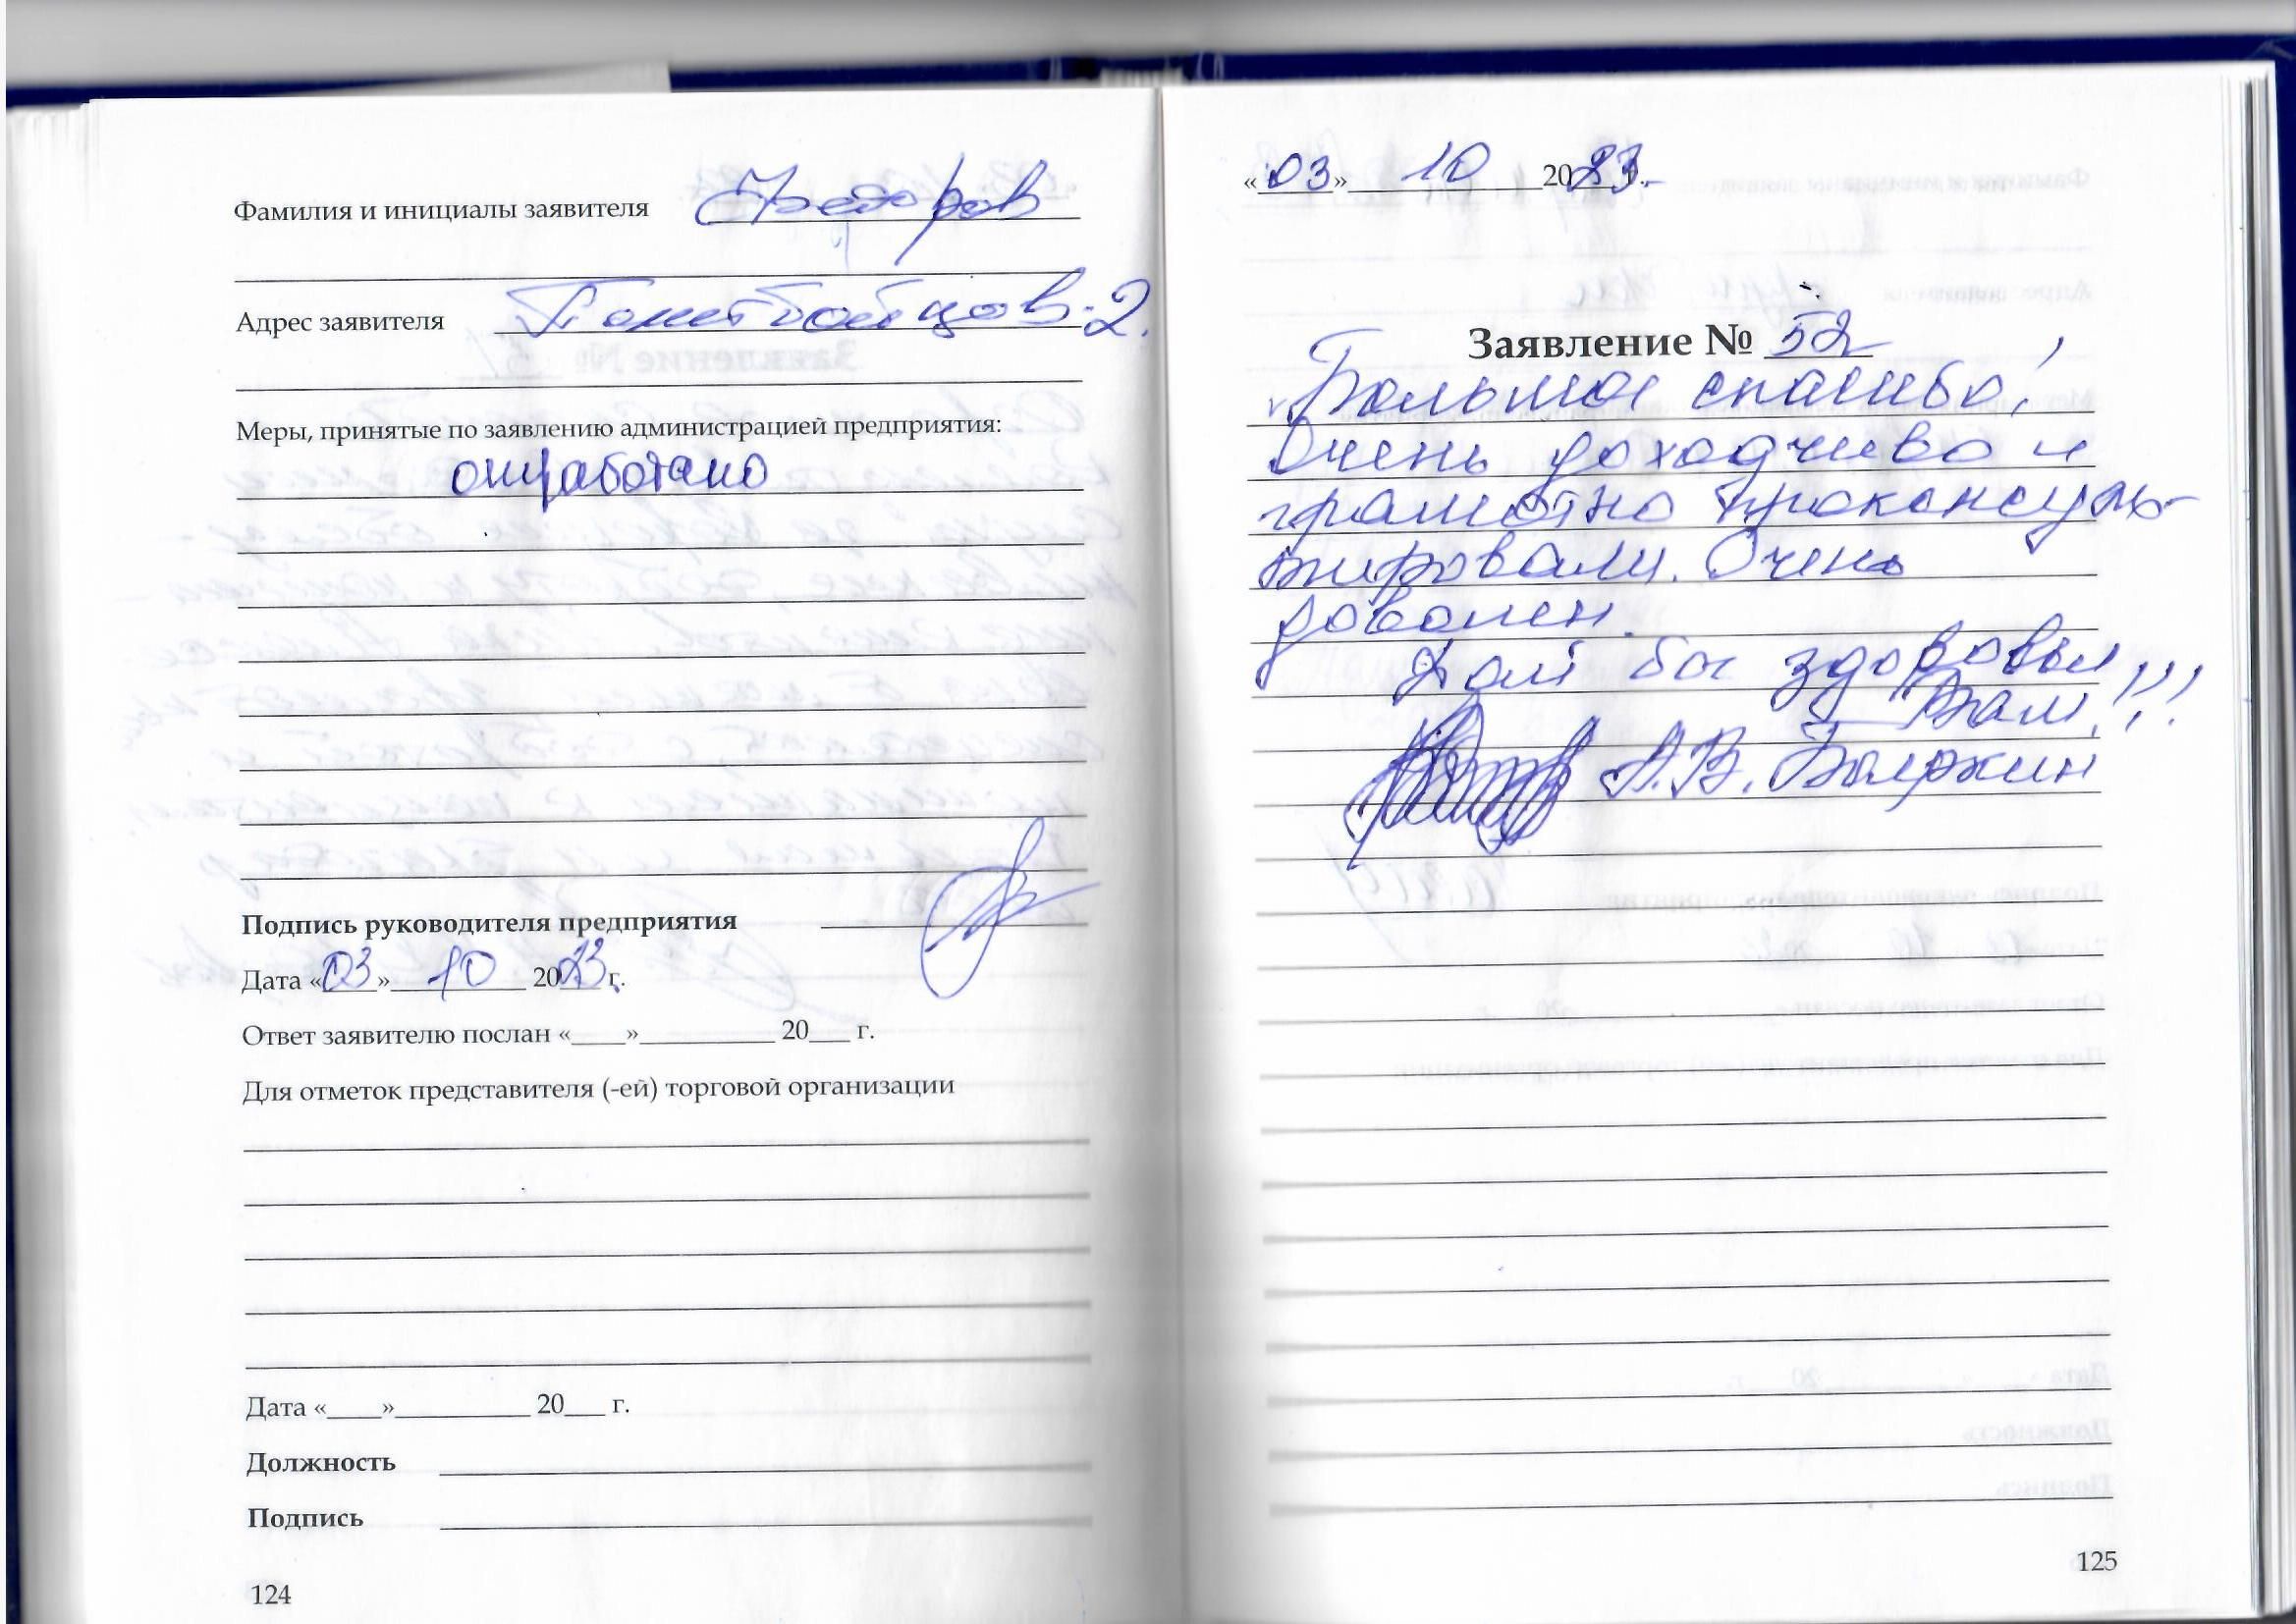 Фамилия и инициалы заявителя Федоров
Адрес заявителя Политбойцов-2.
Меры, принятые по заявлению администрацией предприятия:
отработано
Подпись руководителя предприятия
Дата «03» 10 2023 г.
Ответ заявителю послан «____»__________ 20___ г.
Для отметок представителя (-ей) торговой организации
Дата «____»__________ 20___ г.
Должность
Подпись
124
«03» 10 2023 г.
Заявление № 52
Большое спасибо!
Очень доходчиво и
грамотно проконсуль-
тировали. Очень
доволен.
Дай бог здоровья
Вам!!!
А.В.
125